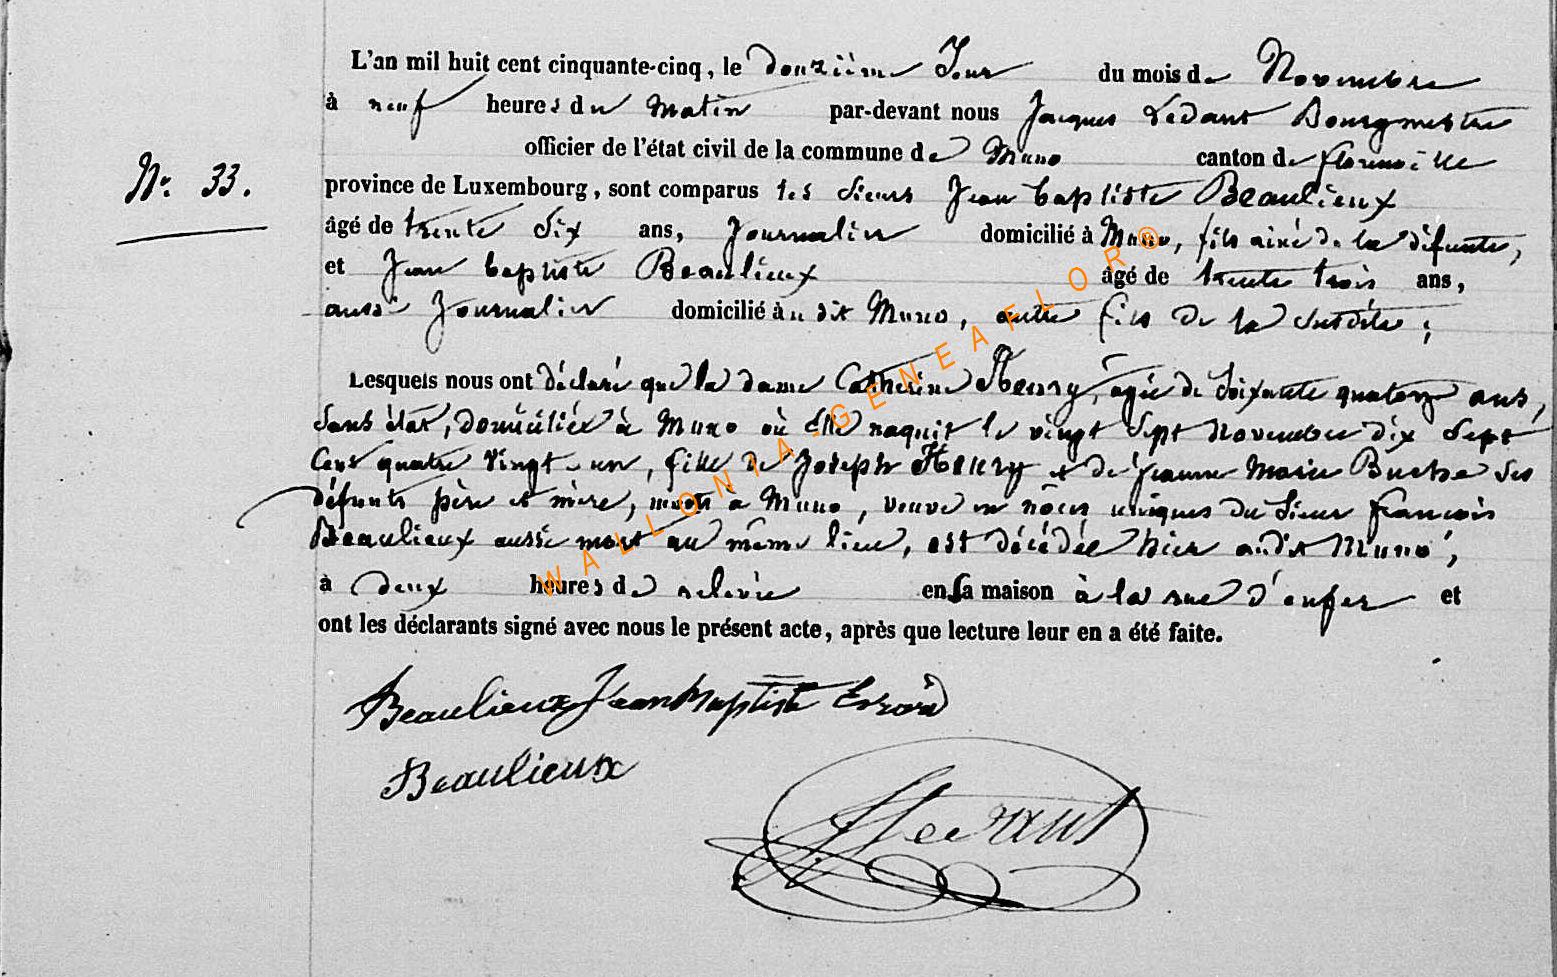 L'an mil huit cent cinquante-cinq, le douzième Jour du mois de Novembre
à neuf heures du Matin par-devant nous Jacques Ledant Bourgmestre
officier de l'état civil de la commune de Muno canton de florenville
Nº 33.
province de Luxembourg, sont comparus les Sieurs Jean baptiste Beaulieux
âgé de trente Six ans, Journalier domicilié à Muno, fils ainé de la défunte,
et Jean baptiste Beaulieux âgé de trente trois ans,
aussi Journalier domicilié audit Muno, autre fils de la susdite ;
Lesquels nous ont déclaré que la dame Catherine Henry, agée de Soixante quatorze ans,
Sans état, domiciliée à Muno où Elle naquit le vingt Sept Novembre dix Sept
Cent quatre Vingt-un, fille de Joseph Henry et de Jeanne Marie ses
défunts père et mère, morts à Muno, veuve en nôces uniques du Sieur francois
Beaulieux aussi mort au même lieu, est décédée hier audit Muno,
à deux heures de relevée en sa maison à la rue d'enfer et
ont les déclarants signé avec nous le présent acte, après que lecture leur en a été faite.
Beaulieux Jean Baptiste
Beaulieux
Ledant
WALLONIA-GENEAFLOR®